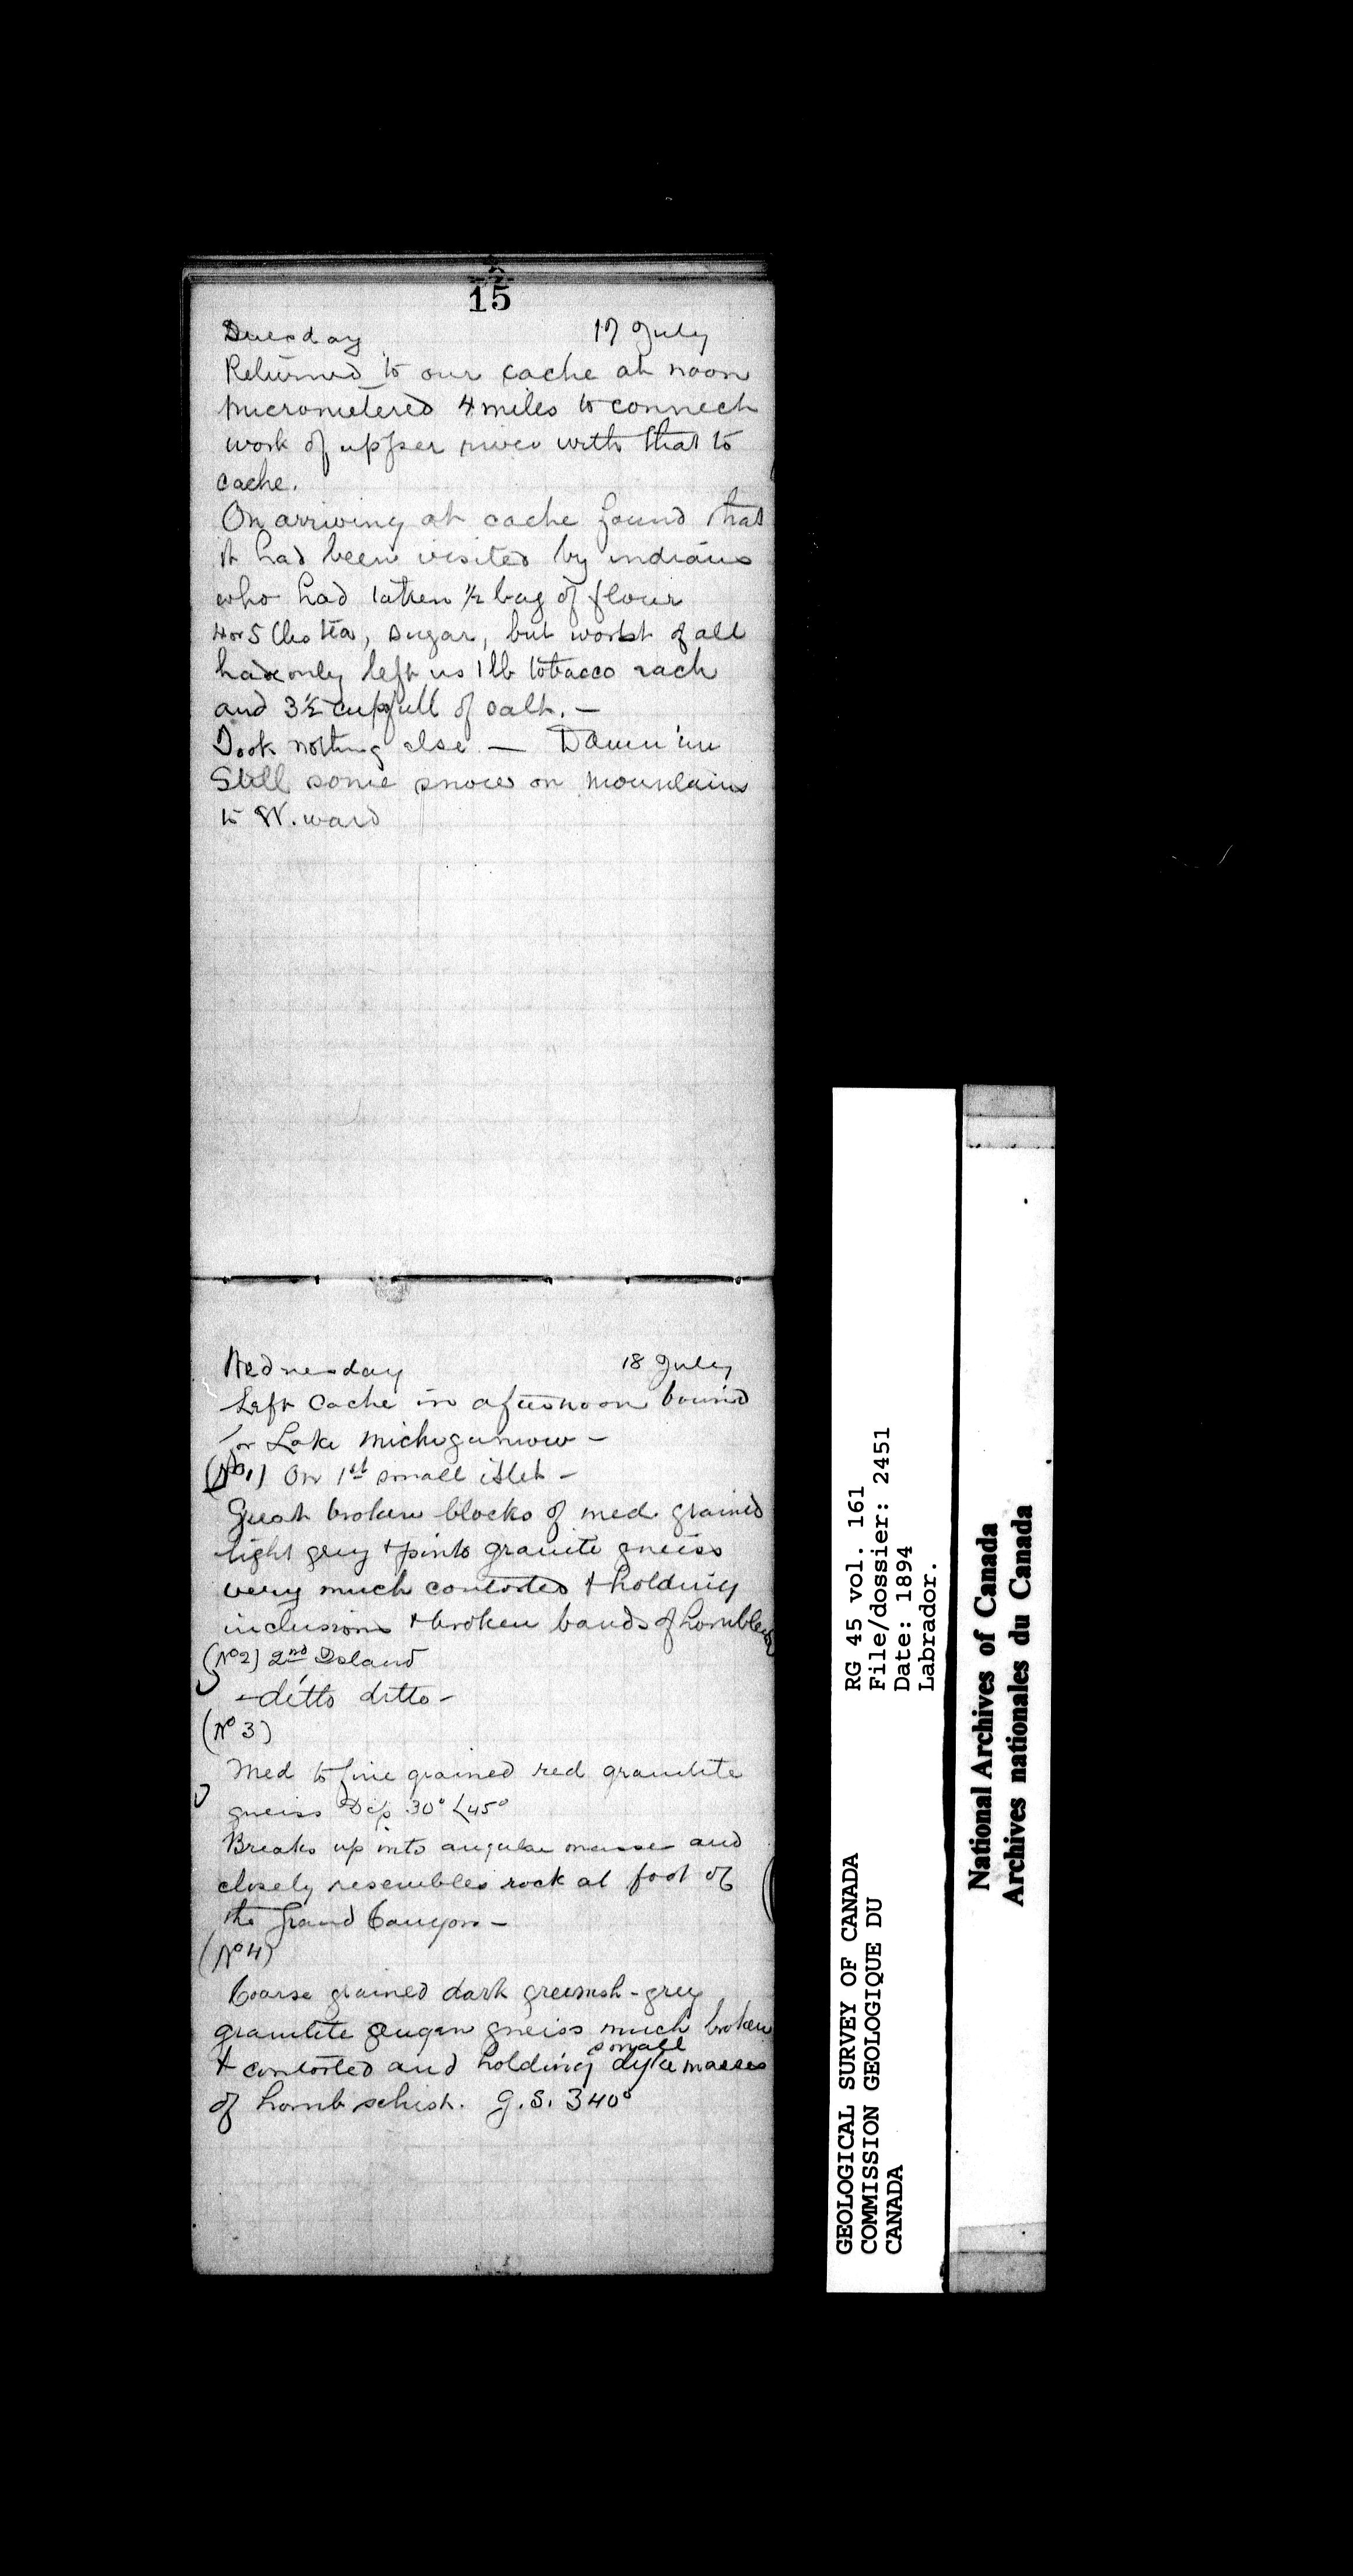 15
Tuesday 17 July
Returned to our cache at noon
Micrometered 4 miles to connect
work of upper river with that to
cache.
On arriving at cache found that
it had been visited by indians
who had taken 1/2 bag of flour
4 or 5 lbs tea, sugar, but worst of all
had only left us 1 lb tobacco each
and 3 1/2 cupfull of salt. —
Took nothing else — Damn 'em
Still some snow on mountains
to W. ward
Wednesday 18 July
Left Cache in afternoon bound
for Lake Michigamow —
(No 1) On 1st small islet —
Great broken blocks of med. grained
light grey & pink granite gneiss
very much contorted & holding
inclusions & broken bands of hornblende
(No 2) 2nd Island
- ditto ditto -
(No 3)
Med to fine grained red granulite
gneiss Dip 30° <45°
Breaks up into angular masses and
closely resembles rock at foot of
the Grand Canyon —
(No 4)
Coarse grained dark greenish-grey
granulite augen gneiss much broken
& contorted and holding small dyke masses
of hornb schist. G.S. 340°
GEOLOGICAL SURVEY OF CANADA
COMMISSION GEOLOGIQUE DU
CANADA
RG 45 vol. 161
File/dossier: 2451
Date: 1894
Labrador.
National Archives of Canada
Archives nationales du Canada